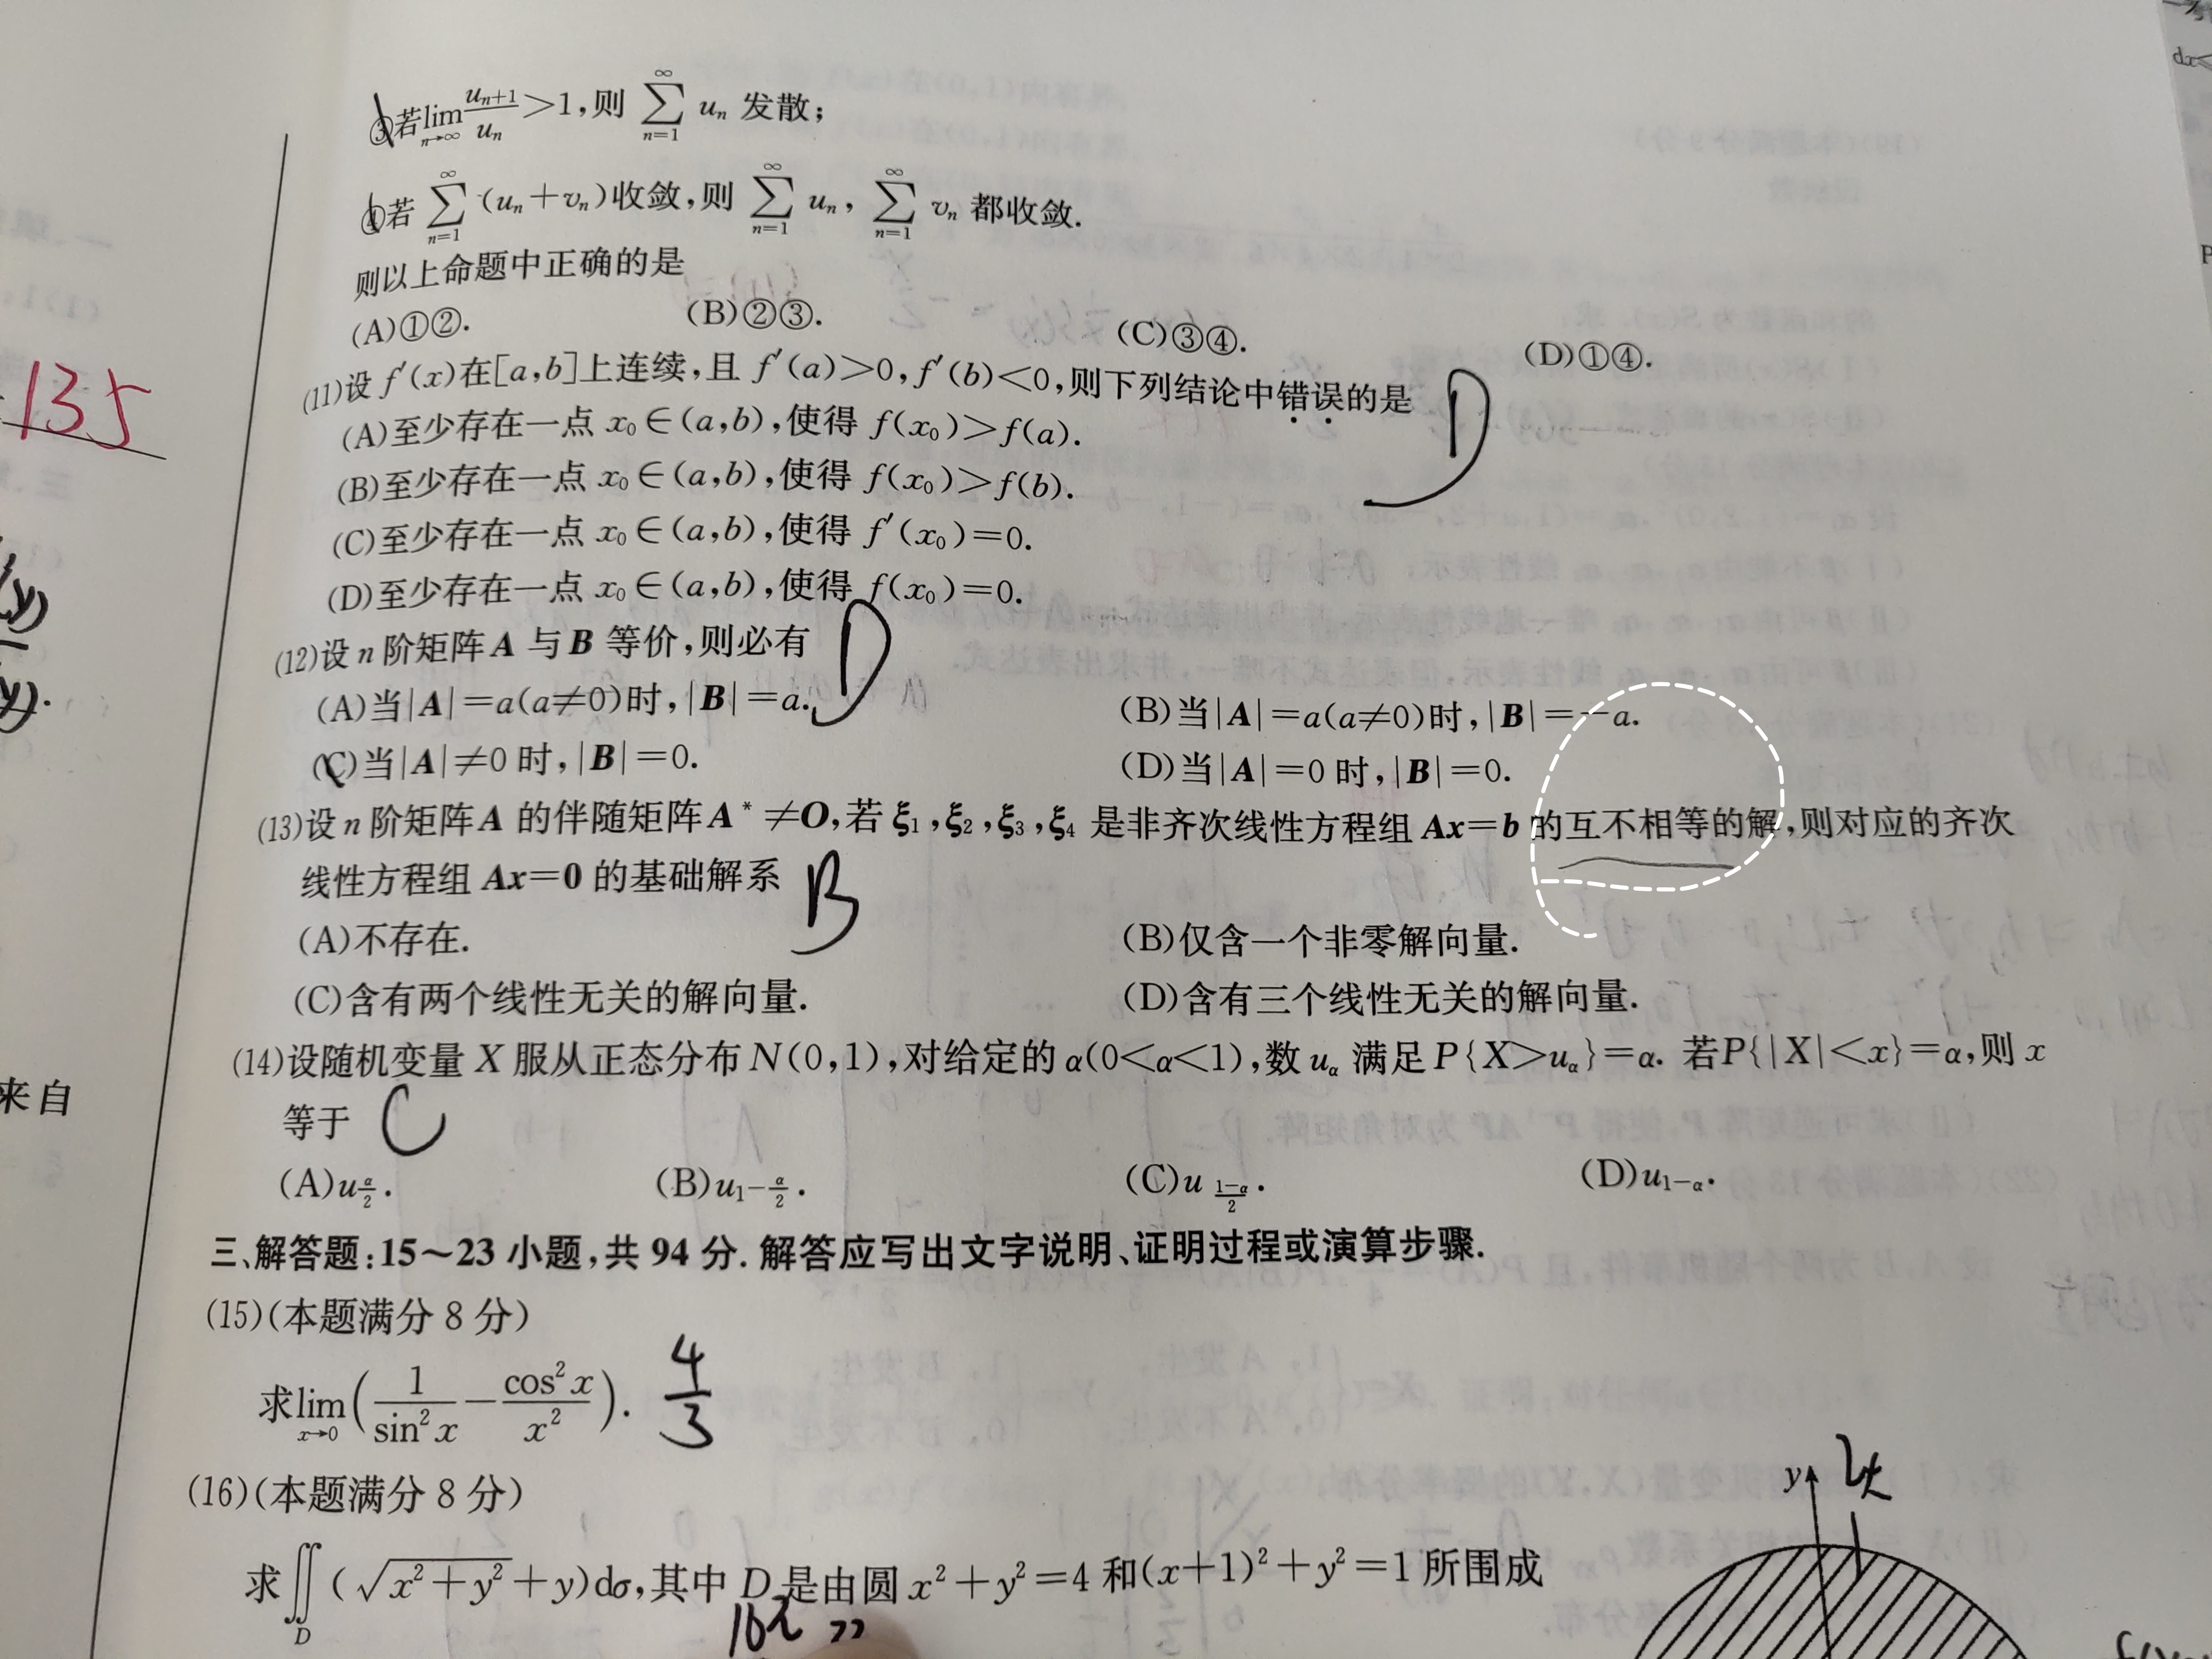 ③若lim(n→∞) u_{n+1}/u_n>1,则 ∑_{n=1}^{∞} u_n 发散;
④若 ∑_{n=1}^{∞} (u_n+v_n)收敛,则 ∑_{n=1}^{∞} u_n, ∑_{n=1}^{∞} v_n 都收敛.
则以上命题中正确的是
(A)①②. (B)②③. (C)③④. (D)①④.
135
(11)设 f′(x)在[a,b]上连续,且 f′(a)>0,f′(b)<0,则下列结论中错误的是 D
(A)至少存在一点 x₀∈(a,b),使得 f(x₀)>f(a).
(B)至少存在一点 x₀∈(a,b),使得 f(x₀)>f(b).
(C)至少存在一点 x₀∈(a,b),使得 f′(x₀)=0.
(D)至少存在一点 x₀∈(a,b),使得 f(x₀)=0.
(12)设 n 阶矩阵 A 与 B 等价,则必有 D
(A)当|A|=a(a≠0)时,|B|=a. (B)当|A|=a(a≠0)时,|B|=-a.
(C)当|A|≠0 时,|B|=0. (D)当|A|=0 时,|B|=0.
(13)设 n 阶矩阵 A 的伴随矩阵 A*≠O,若 ξ₁,ξ₂,ξ₃,ξ₄ 是非齐次线性方程组 Ax=b 的互不相等的解,则对应的齐次
线性方程组 Ax=0 的基础解系 B
(A)不存在. (B)仅含一个非零解向量.
(C)含有两个线性无关的解向量. (D)含有三个线性无关的解向量.
(14)设随机变量 X 服从正态分布 N(0,1),对给定的 α(0<α<1),数 u_α 满足 P{X>u_α}=α. 若P{|X|<x}=α,则 x
等于 C
(A)u_{α/2}. (B)u_{1-α/2}. (C)u_{(1-α)/2}. (D)u_{1-α}.
来自
三、解答题:15~23 小题,共 94 分. 解答应写出文字说明、证明过程或演算步骤.
(15)(本题满分 8 分)
求lim(x→0) (1/sin²x - cos²x/x²). 4/3
(16)(本题满分 8 分)
y
求∬_D (√(x²+y²)+y)dσ,其中 D 是由圆 x²+y²=4 和(x+1)²+y²=1 所围成